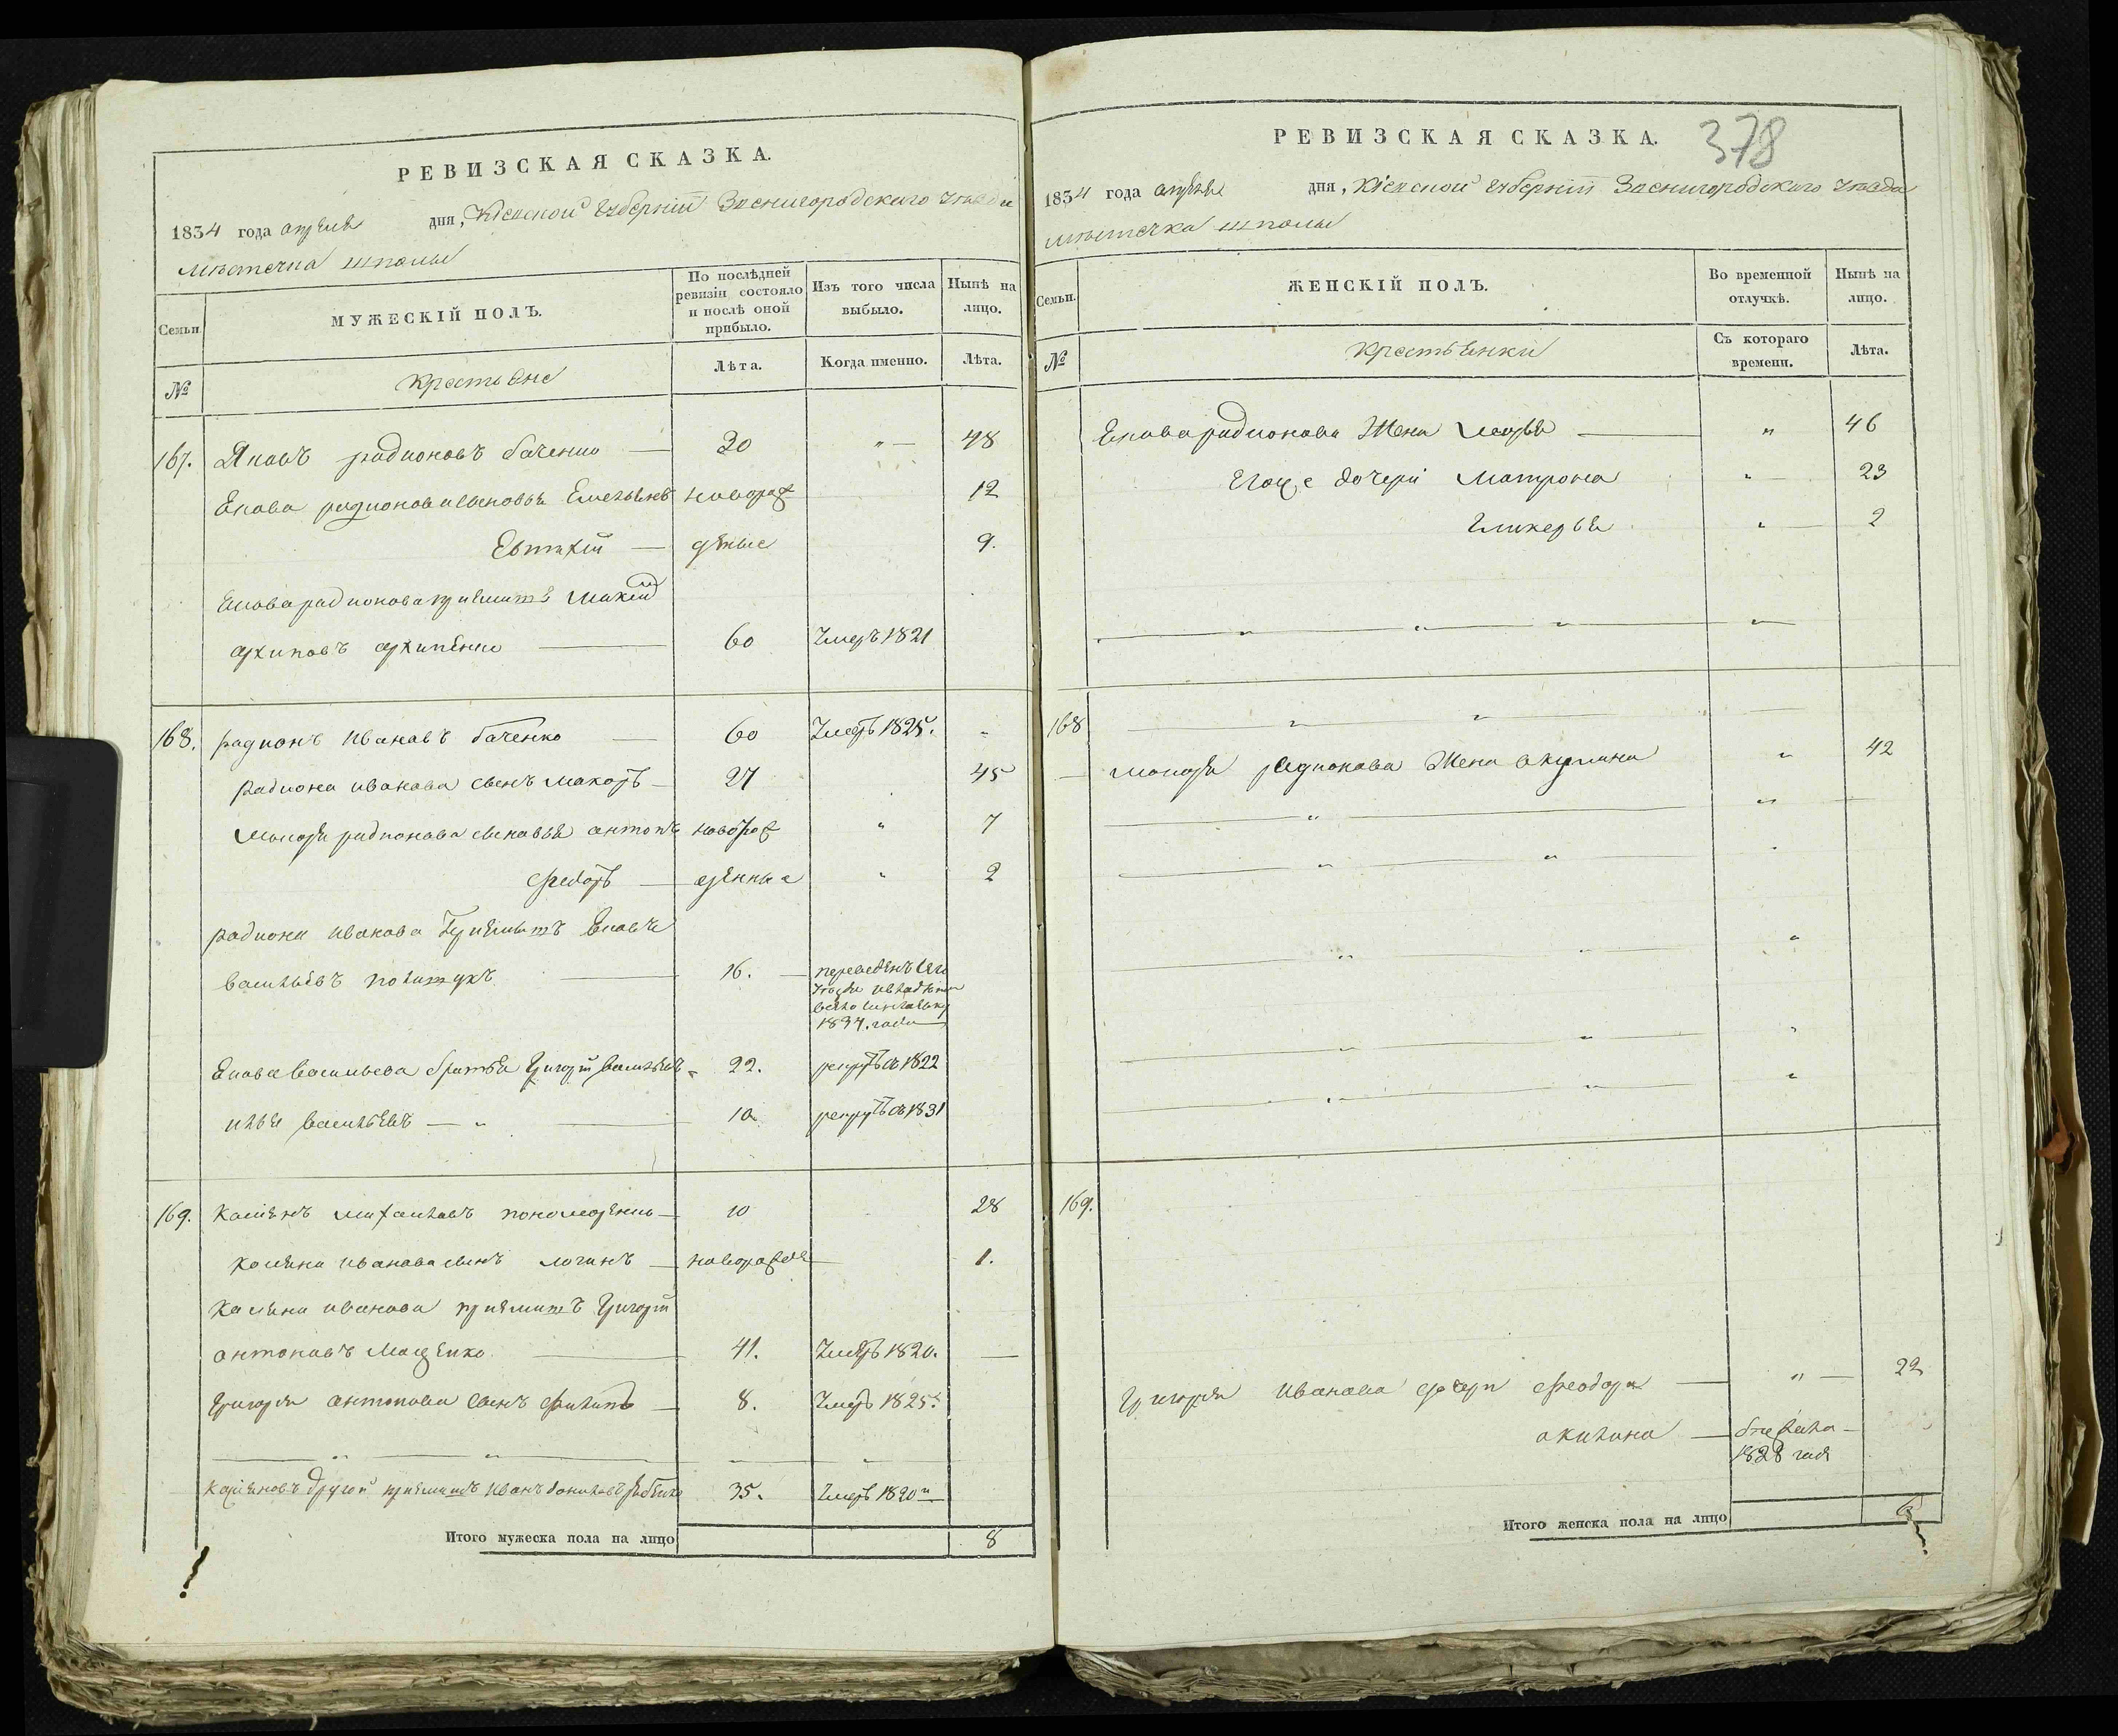 РЕВИЗСКАЯ СКАЗКА.
1834 года апреля дня, Кіевской Губерніи Звенигородского уезда
местечка шполы
Семьи.
МУЖЕСКІЙ ПОЛЪ.
По послѣдней ревизіи состояло и послѣ оной прибыло.
Изъ того числа выбыло.
Нынѣ на лицо.
№
крестьяне
Лѣта.
Когда именно.
Лѣта.
167. Яковъ радионовъ баченко — 30 „ — 48
Екова радионова сыновья Емельянъ новорож 12
Евтихій — деные 9.
Екова радионова приемышъ
архиповъ архипенко — 60 Умеръ 1821
168. радионъ Ивановъ баченко — 60 Умеръ 1825.
радиона иванова сынъ макаръ — 27 45
макара радионова сыновья антонъ новорож „ 7
федоръ — денные „ 2
радиона иванова приемышъ Яковъ
васильевъ 16. — переведенъ
1834. года
Екова васильева братья Григорій васильевъ 22. рекрутъ въ 1822
илья васильевъ — „ — 10 рекрутъ въ 1831
169. Касіянъ пономаренко — 10 28
иванова сынъ логинъ — новорожде 1.
иванова приемышъ Григорій
антоновъ — 41. Умеръ 1820. —
Григорія антонова сынъ филипъ — 8. Умеръ 1825.
другой приемышъ Иванъ 35. Умеръ 1820
Итого мужеска пола на лицо 8
РЕВИЗСКАЯ СКАЗКА. 378
1834 года апреля дня, Кіевской Губерніи Звенигородского уезда
местечка шполы
Семьи.
ЖЕНСКІЙ ПОЛЪ.
Во временной отлучкѣ.
Нынѣ на лицо.
№
крестьянки
Съ котораго времени.
Лѣта.
Екова радионова Жена марья — „ 46
Его же дочери Матрона „ 23
Гликерья „ 2
168
макара радионова Жена акулина „ 42
169.
Григорія Иванова дочери феодора — „ — 22
акилина —
1828 года
Итого женска пола на лицо